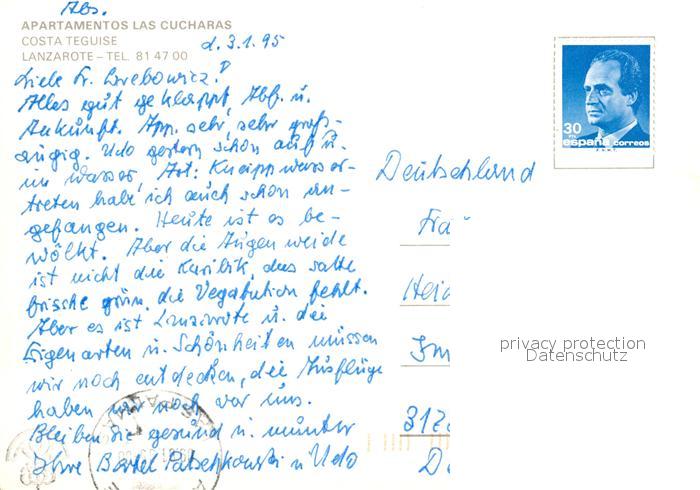 Abs.
APARTAMENTOS LAS CUCHARAS
COSTA TEGUISE
LANZAROTE – TEL. 81 47 00
d. 3.1.95
Liebe Fr.
Alles gut geklappt, Abf. u.
Ankunft. App. sehr, sehr groß-
zügig. Udo gestern schon auf u.
im Wasser, Art: Kneippwasser-
treten habe ich auch schon an-
gefangen. Heute ist es be-
wölkt. Aber die Augenweide
ist nicht die Karibik, das satte
frische grün, die Vegatution fehlt.
Aber es ist Lanzarote u. die
Eigenarten u. Schönheiten müssen
wir noch entdecken, die Ausflüge
haben wir noch vor uns.
Bleiben Sie gesund u. munter
Ihre Bärbel u Udo
30
PTA
españa correos
Deutschland
Fra
Heid
Im
317
D
privacy protection
Datenschutz